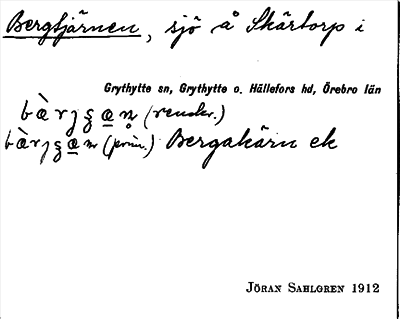 Bergtjärnen, sjö å Skärtorp i
Grythytte sn, Grythytte o. Hällefors hd, Örebro län
(renskr.)
(prim.) Bergakärn ek
JÖRAN SAHLGREN 1912